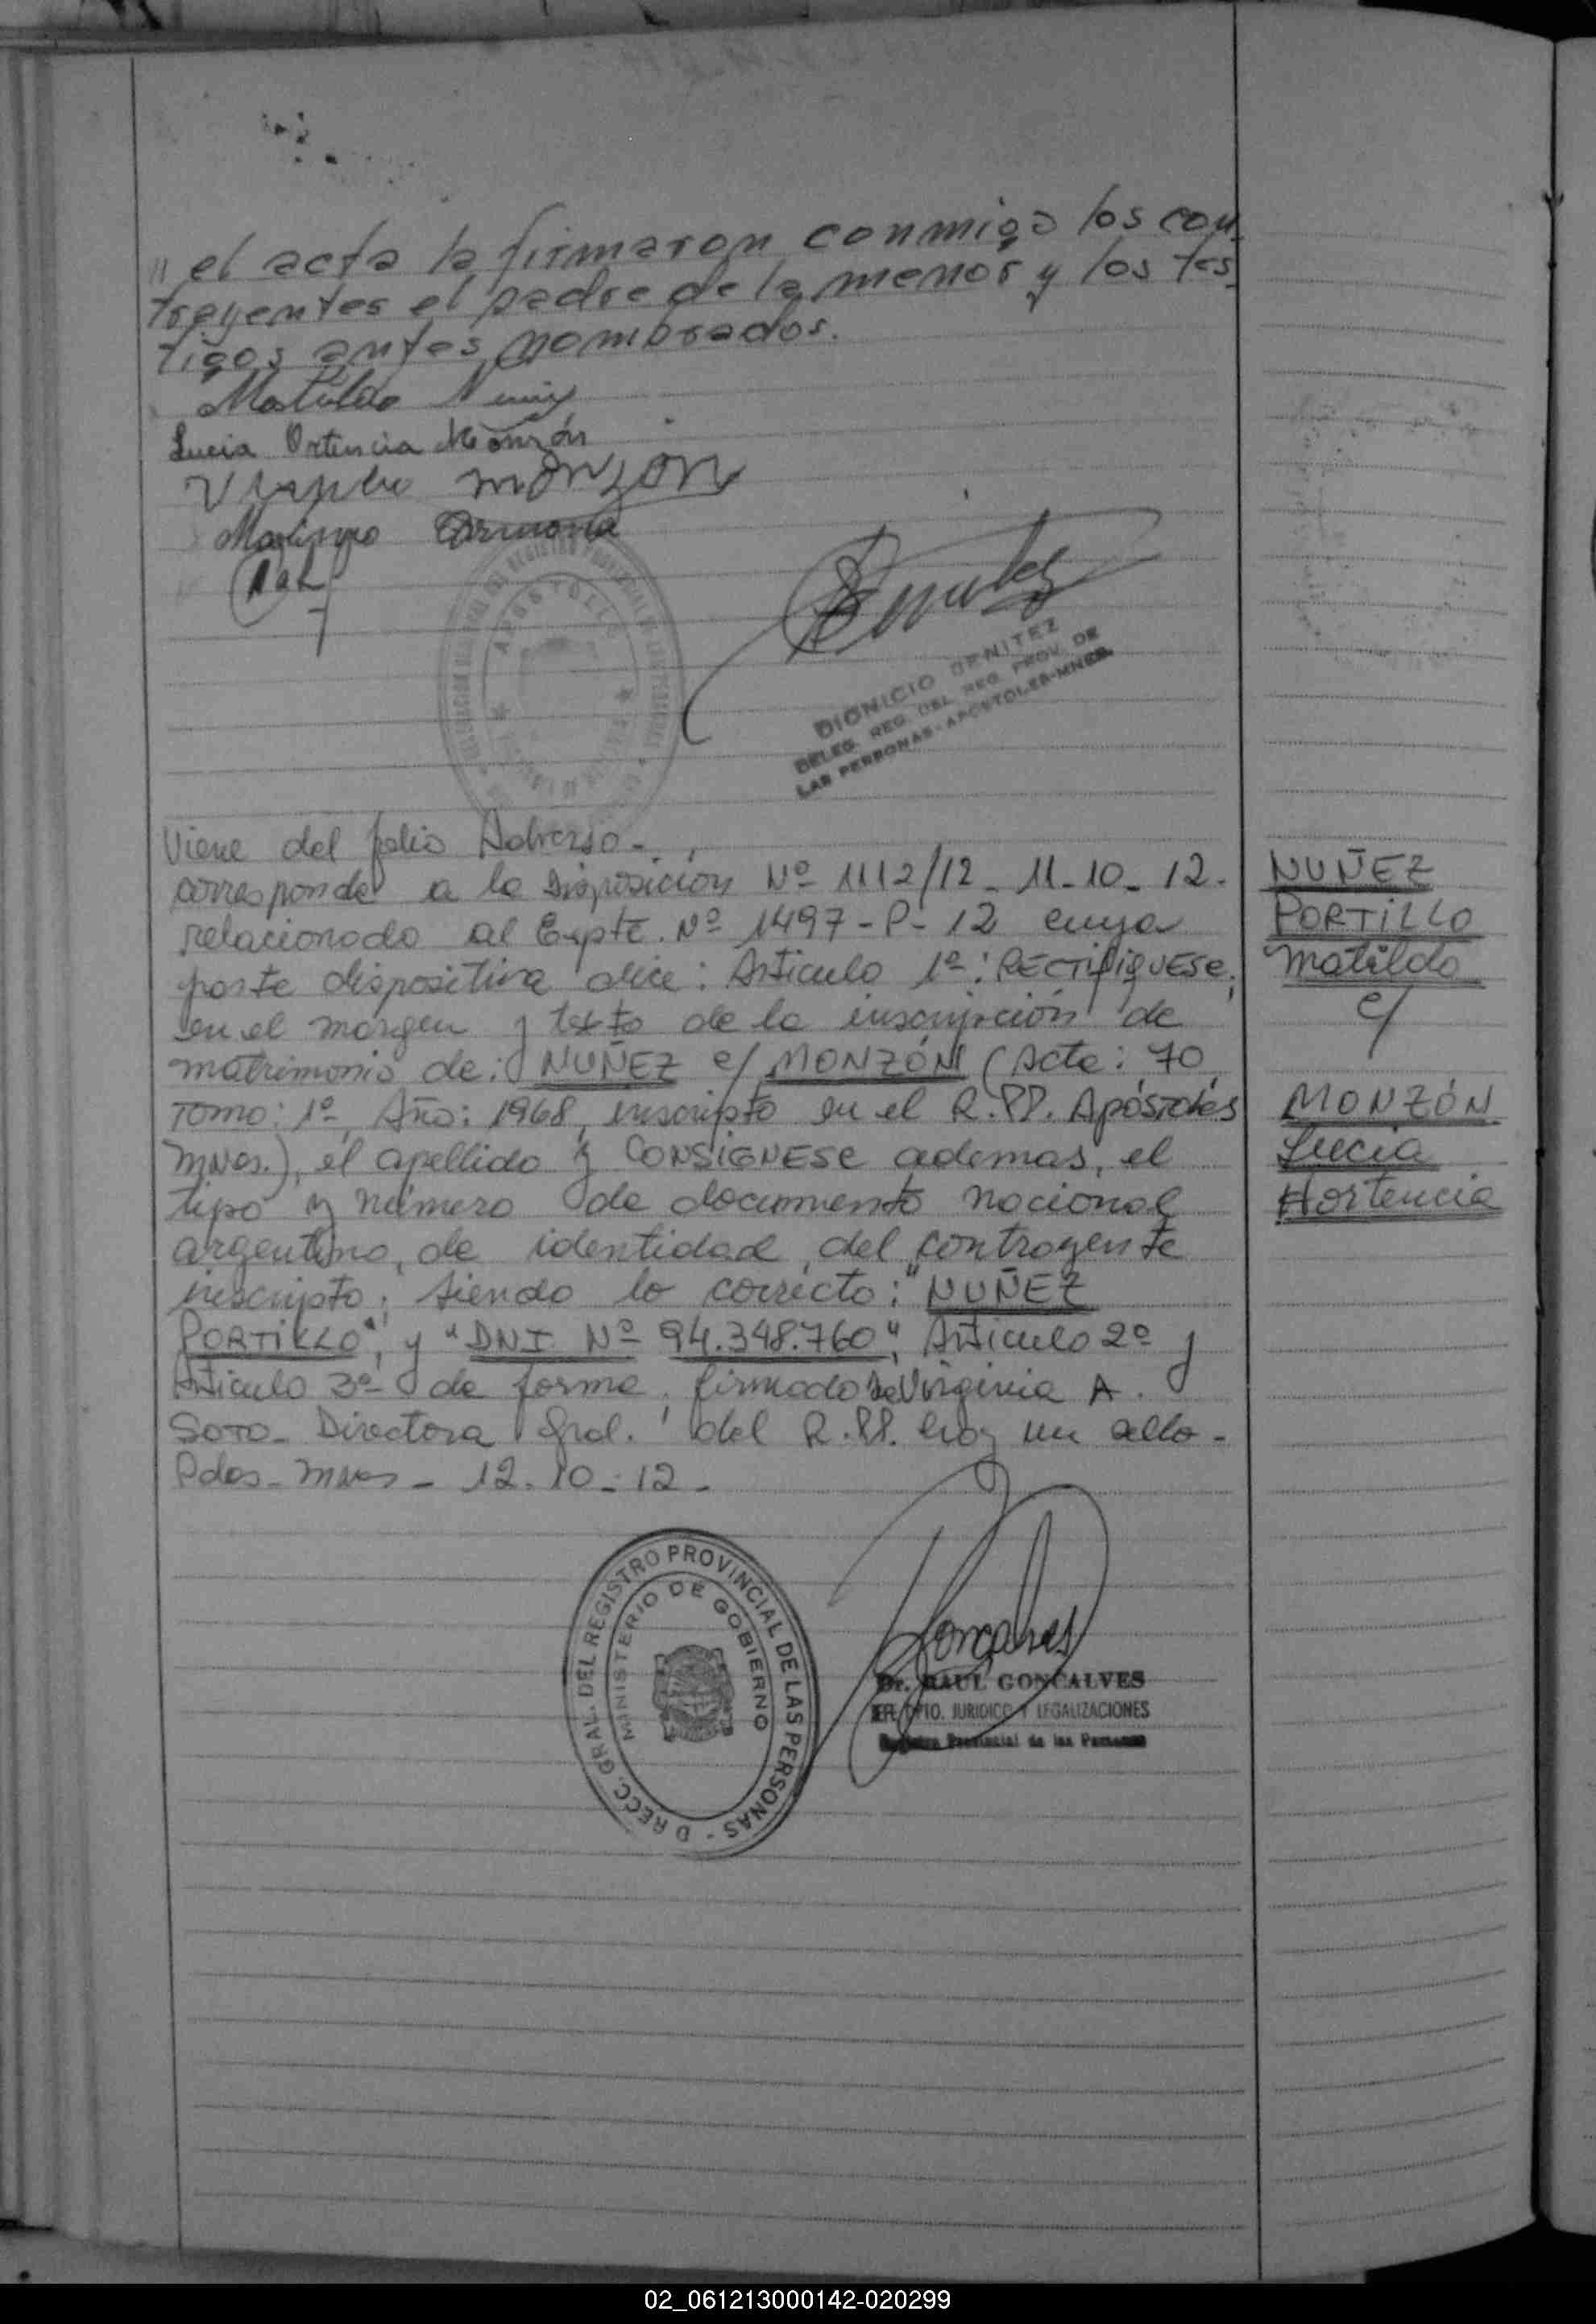 " el acta la firmaron conmigo los con-
trayentes el padre de la menor y los tes-
tigos antes nombrados.
Matildo Nuñez
Lucia Ortencia Monzón
monzon
APOSTOLES
DIONICIO BENITEZ
DELEG. REG. DEL REG. PROV. DE
LAS PERSONAS-APOSTOLES-MNES.
Viene del folio Adverso-
corresponde a la Disposición Nº 1112/12- 11-10-12.
relacionado al Expte. Nº 1497-P-12 cuya
parte dispositiva dice: Articulo 1º: RECTIFIQUESE,
en el margen y texto de la inscripción de
matrimonio de: NUÑEZ c/ MONZÓN (Acta: 70
Tomo: 1º, Año: 1968, inscripto en el R.PP. Apóstoles
Mnes.), el apellido y CONSIGNESE ademas, el
tipo y número de documento nacional
argentino, de identidad, del contrayente
inscripto; siendo lo correcto: "NUÑEZ
PORTILLO", y "DNI Nº 94.348.760", Articulo 2º y
Articulo 3º de forma, firmado Virginia A.
SOTO- Directora Gral. del R.PP. hay un sello-
Pdas- Mnes- 12-10-12-
NUÑEZ
PORTILLO
Matildo
c/
MONZÓN
Lucia
Hortencia
DRECC. GRAL. DEL REGISTRO PROVINCIAL DE LAS PERSONAS -
MINISTERIO DE GOBIERNO
Goncalves
Dr. RAUL GONCALVES
DPTO. JURIDICO Y LEGALIZACIONES
Registro Provincial de las Personas
02_061213000142-020299